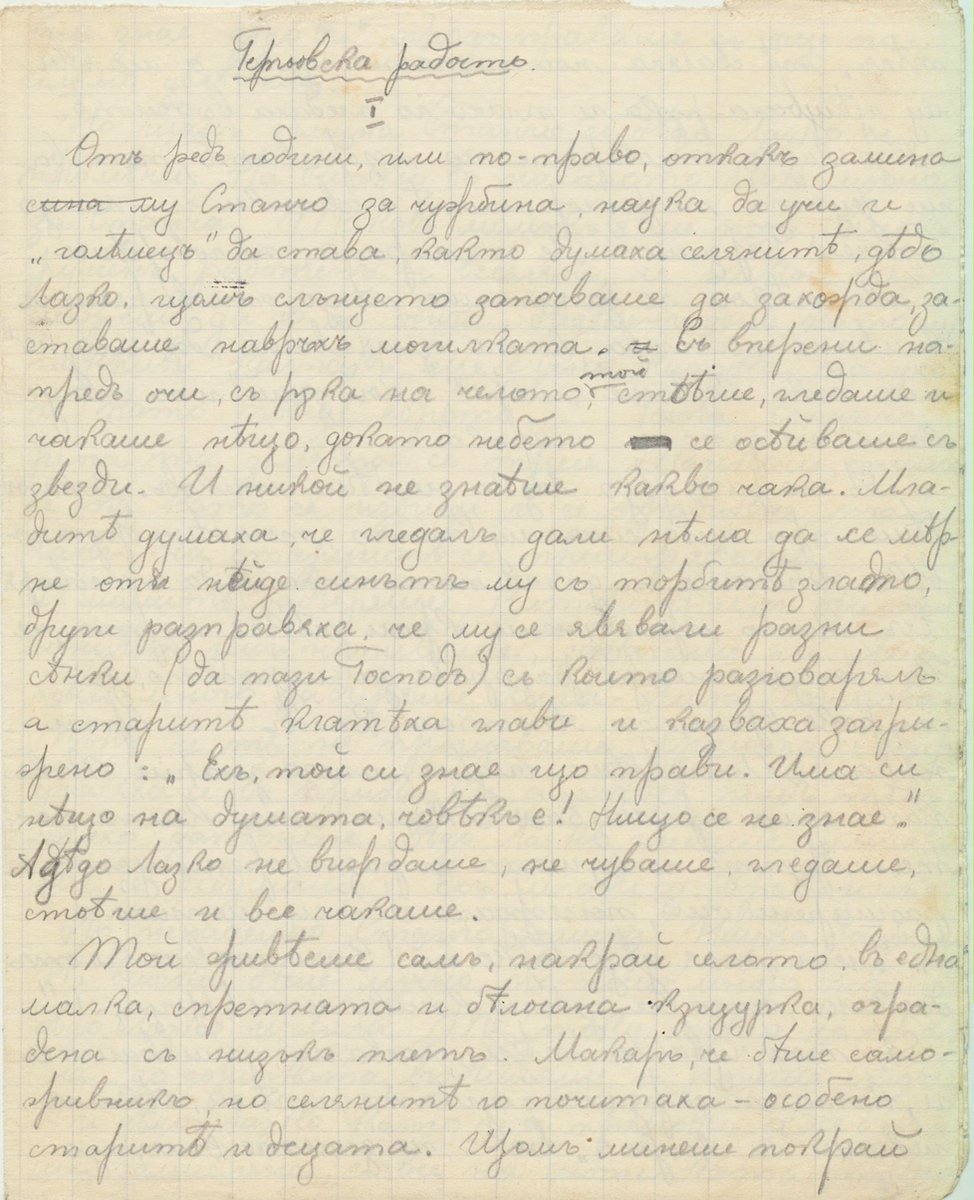 Гергьовска радость.
I
Отъ редъ години, или по-право, откакъ замина
сина му Станчо за чужбина, наука да учи и
„голѣмецъ" да става, както думаха селянитѣ, дѣдо
Лазко, щомъ слънцето започваше да захожда, за-
ставаше навръхъ могилката. и Съ вперени на-
предъ очи, съ рѫка на челото, той стоѣше, гледаше и
чакаше нѣщо, докато небето се осѣйваше съ
звезди. И никой не знаѣше какво чака. Мла-
дитѣ думаха, че гледалъ дали нѣма да се мѣр-
не отъ нѣйде синътъ му съ торбитѣ злато,
други разправяха, че му се явявали разни
сѣнки (да пази Господь) съ които разговарялъ
а старитѣ клатѣха глави и казваха загри-
жено: „Ехъ, той си знае що прави. Има си
нѣщо на душата, човѣкъ е! Нищо се не знае."
А дѣдо Лазко не виждаше, не чуваше, гледаше,
стоѣше и все чакаше.
Той живѣеше самъ, накрай селото въ една
малка, спретната и бѣлосана кѫщурка, огра-
дена съ низъкъ плетъ. Макаръ, че бѣше само-
живникъ, но селянитѣ го почитаха - особено
старитѣ и децата. Щомъ минеше покрай